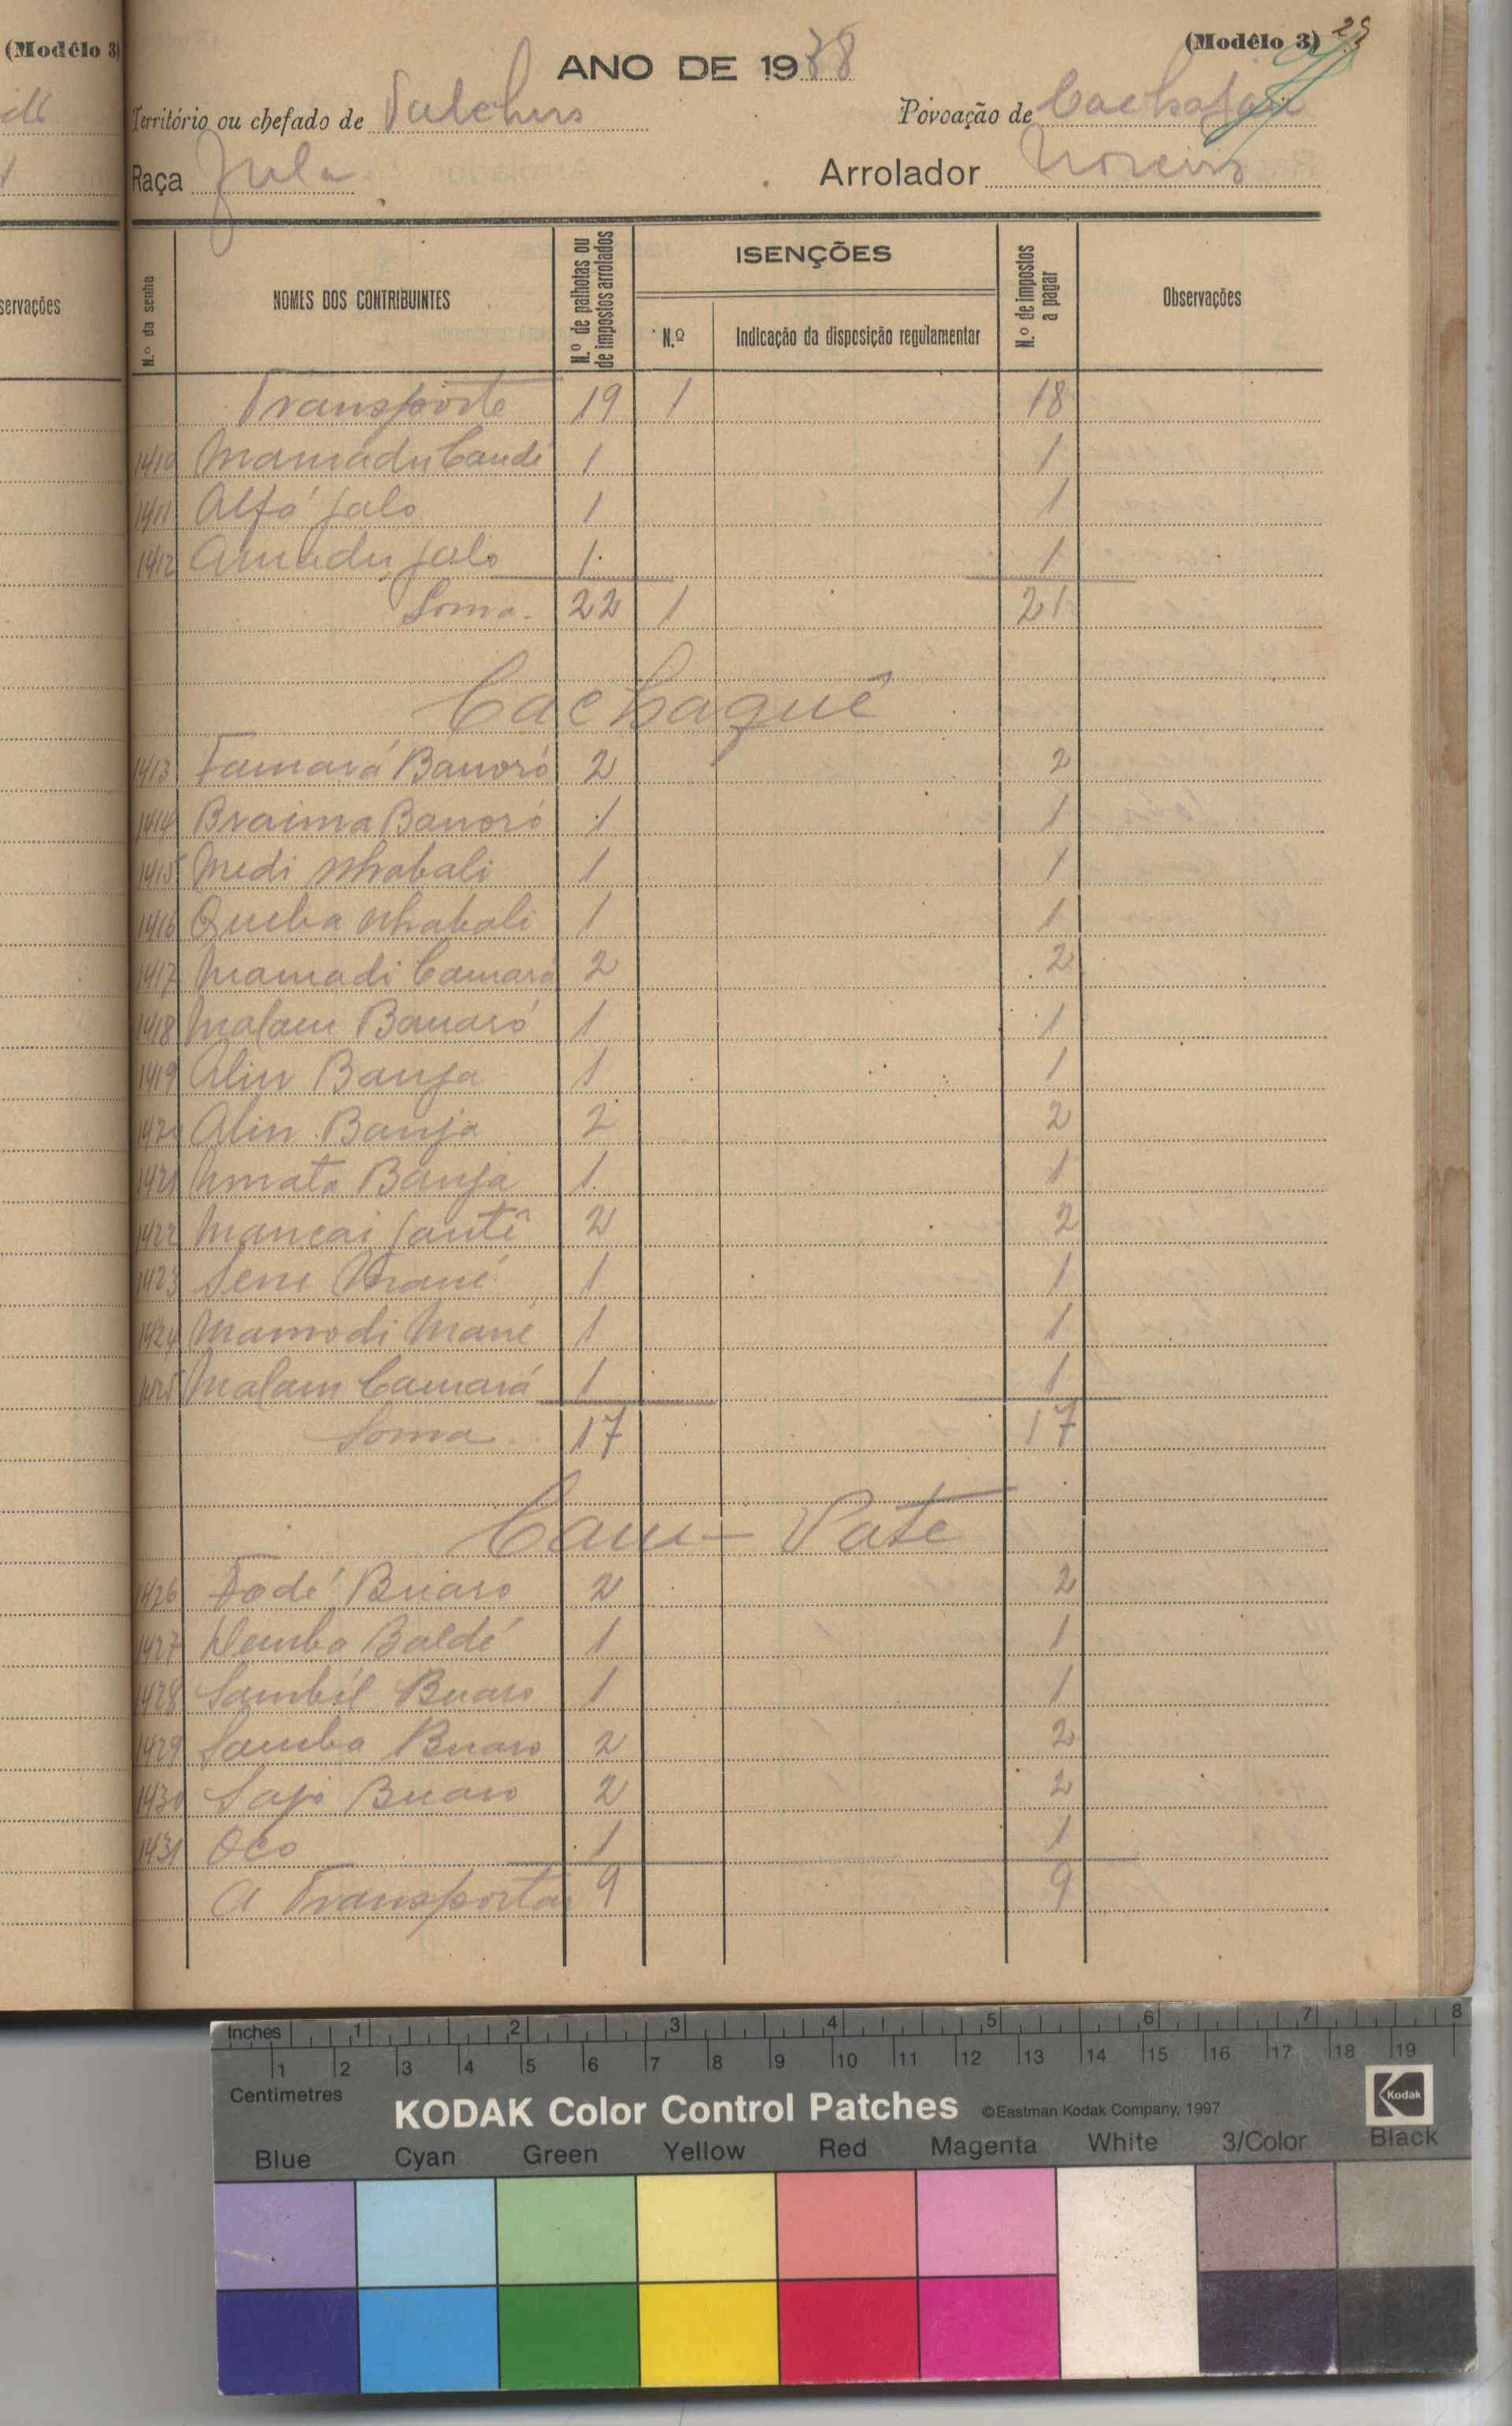 (Modêlo 3)
servações
(Modêlo 3)
ANO DE 1938
Território ou chefado de
Povoação de
Raça Fula
Arrolador Moreira
N.º da senha
NOMES DOS CONTRIBUINTES
N.º de palhotas ou de impostos arrolados
ISENÇÕES
N.º
Indicação da disposição regulamentar
N.º de impostos a pagar
Observações
Transporte 19 1 18
1410 Mamadu Candé 1 1
1411 Alfá Jaló 1 1
1412 Amadu Jaló 1 1
Soma 22 1 21
Cachaquê
1413 Famará Banoró 2 2
1414 Braima Banoró 1 1
1415 Medi Nhabali 1 1
1416 Queba Nhabali 1 1
1417 Mamadi Camará 2 2
1418 Malam Banaró 1 1
1419 Aliu Banja 1 1
1420 Aliu Banja 2 2
1421 Banja 1 1
1422 Mancai 2 2
1423 Mané 1 1
1424 Mamodi Mané 1 1
1425 Malam Camará 1 1
Soma 17 17
Cam-Pate
1426 Fodé Buaro 2 2
1427 Demba Baldé 1 1
1428 Sambél Buaro 1 1
1429 Samba Buaro 2 2
1430 Sajo Buaro 2 2
1431 Oco 1 1
A Transportar 9 9
Inches 1 2 3 4 5 6 7 8
1 2 3 4 5 6 7 8 9 10 11 12 13 14 15 16 17 18 19
Centimetres
KODAK Color Control Patches ©Eastman Kodak Company, 1997
Kodak
Blue Cyan Green Yellow Red Magenta White 3/Color Black